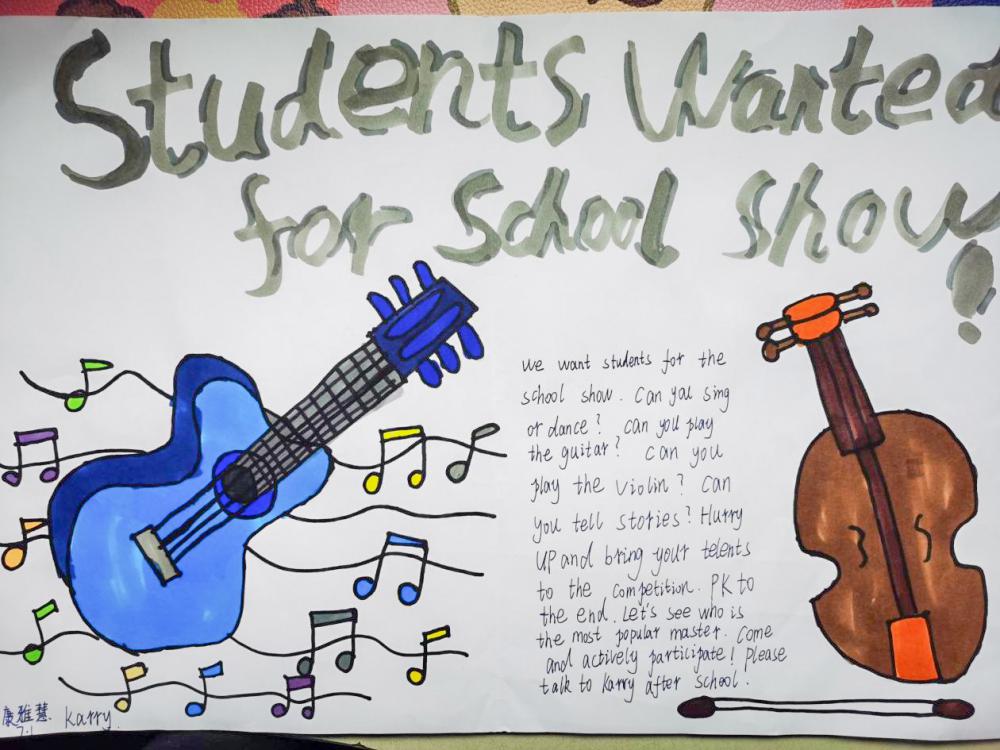 Students Wanted
for School Show!
we want students for the
school show. Can you sing
or dance? can you play
the guitar? Can you
play the violin? Can
you tell stories? Hurry
up and bring your telents
to the competition. PK to
the end. Let's see who is
the most popular master. Come
and actively participate! please
talk to Karry after school.
康雅慧. Karry.
7.1